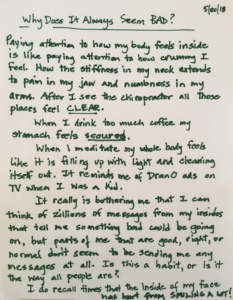 5/20/18
Why Does It Always Seem BAD?
Paying attention to how my body feels inside
is like paying attention to how crummy I
feel. How the stiffness in my neck extends
to pain in my jaw and numbness in my
arms. After I see the chiropractor all those
places feel CLEAR.
When I drink too much coffee my
stomach feels scoured.
When I meditate my whole body feels
like it is filling up with light and cleaning
itself out. It reminds me of DranO ads on
TV when I was a kid.
It really is bothering me that I can
think of zillions of messages from my insides
that tell me something bad could be going
on, but parts of me that are good, right, or
normal don't seem to be sending me any
messages at all. Is this a habit, or is it
the way all people are?
I do recall times that the inside of my face
has hurt from smiling a lot!